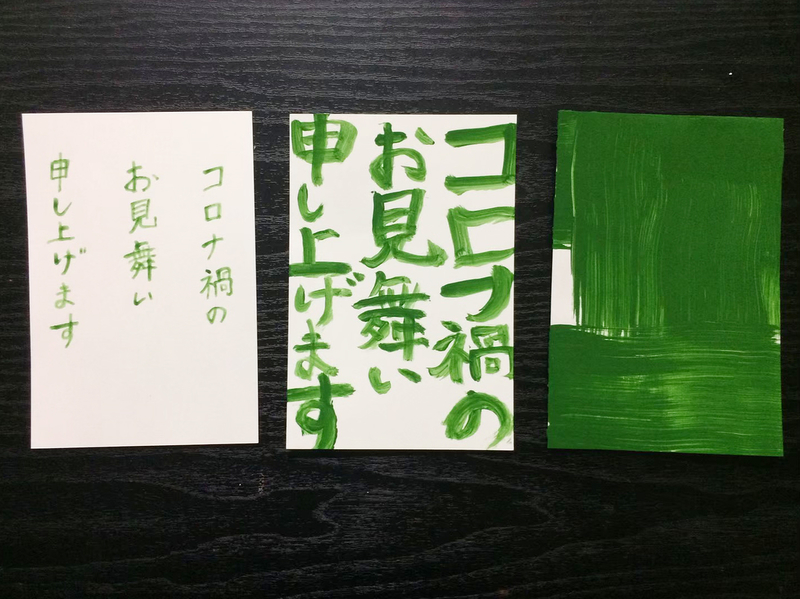 コロナ禍の
お見舞い
申し上げます
コロナ禍の
お見舞い
申し上げます